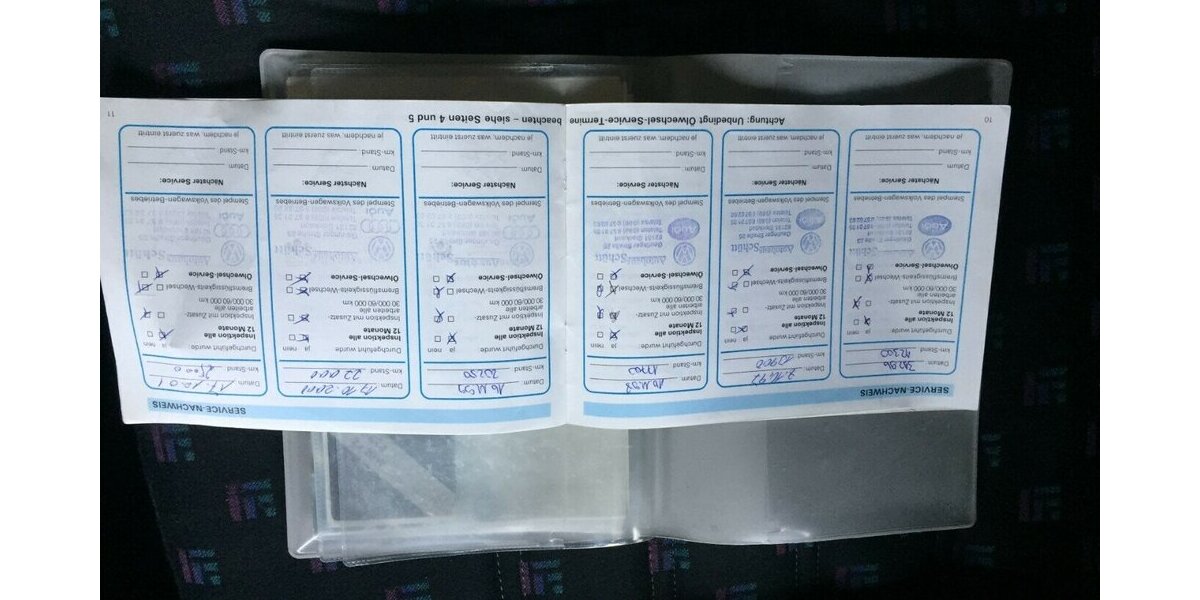 SERVICE-NACHWEIS
Datum
km-Stand
Durchgeführt wurde: ja nein
Inspektion alle
12 Monate
Inspektion mit Zusatz-
arbeiten alle
30 000/60 000 km
Bremsflüssigkeits-Wechsel
Ölwechsel-Service
Audi
Stempel des Volkswagen-Betriebes
Nächster Service:
Datum
km-Stand
je nachdem, was zuerst eintritt
10
Datum
km-Stand 12900
Durchgeführt wurde: ja nein
Inspektion alle
12 Monate
Inspektion mit Zusatz-
arbeiten alle
30 000/60 000 km
Bremsflüssigkeits-Wechsel
Ölwechsel-Service
Autohaus Schütt
Stempel des Volkswagen-Betriebes
Nächster Service:
Datum
km-Stand
je nachdem, was zuerst eintritt
Datum 16.11.98
km-Stand
Durchgeführt wurde: ja nein
Inspektion alle
12 Monate
Inspektion mit Zusatz-
arbeiten alle
30 000/60 000 km
Bremsflüssigkeits-Wechsel
Ölwechsel-Service
Autohaus Schütt
Audi
Stempel des Volkswagen-Betriebes
Nächster Service:
Datum
km-Stand
je nachdem, was zuerst eintritt
Achtung: Unbedingt Ölwechsel-Service-Termine
SERVICE-NACHWEIS
Datum 16.11.99
km-Stand 20250
Durchgeführt wurde: ja nein
Inspektion alle
12 Monate
Inspektion mit Zusatz-
arbeiten alle
30 000/60 000 km
Bremsflüssigkeits-Wechsel
Ölwechsel-Service
Audi
Stempel des Volkswagen-Betriebes
Nächster Service:
Datum
km-Stand
je nachdem, was zuerst eintritt
Datum
km-Stand 22000
Durchgeführt wurde: ja nein
Inspektion alle
12 Monate
Inspektion mit Zusatz-
arbeiten alle
30 000/60 000 km
Bremsflüssigkeits-Wechsel
Ölwechsel-Service
Autohaus Schütt
Audi
Stempel des Volkswagen-Betriebes
Nächster Service:
Datum
km-Stand
je nachdem, was zuerst eintritt
Datum
km-Stand 25000
Durchgeführt wurde: ja nein
Inspektion alle
12 Monate
Inspektion mit Zusatz-
arbeiten alle
30 000/60 000 km
Bremsflüssigkeits-Wechsel
Ölwechsel-Service
Audi
Stempel des Volkswagen-Betriebes
Nächster Service:
Datum
km-Stand
je nachdem, was zuerst eintritt
beachten – siehe Seiten 4 und 5
11